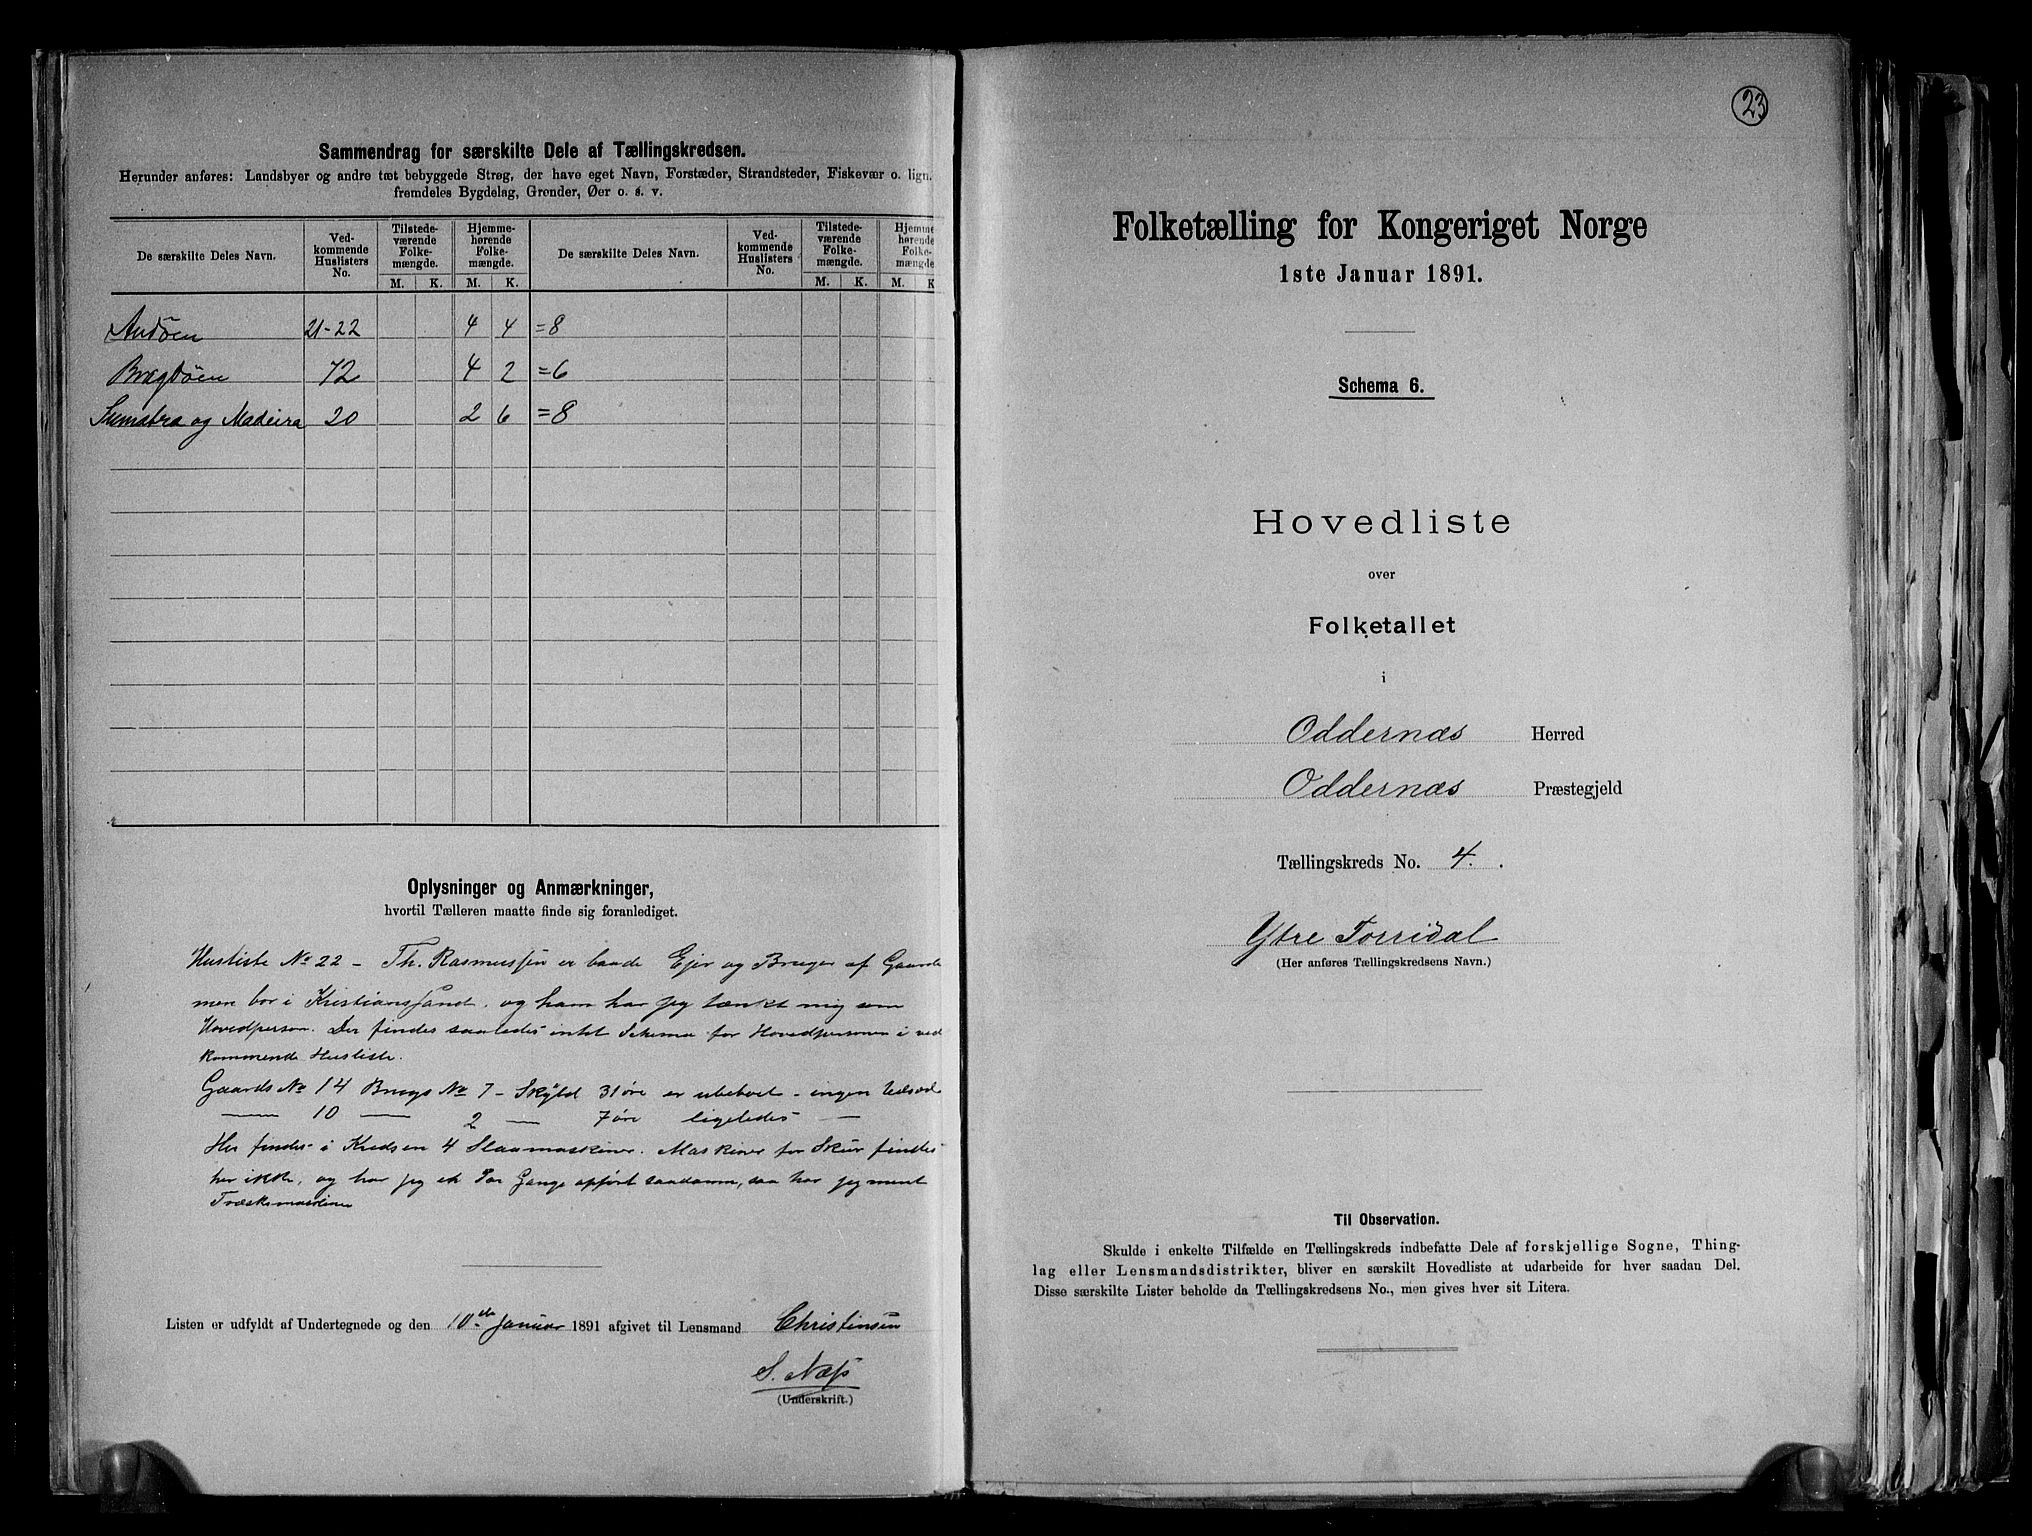 Sammendrag for særskilte Dele af Tællingskredsen.
Herunder anføres: Landsbyer og andre tæt bebyggede Strøg, der have eget Navn, Forstæder, Strandsteder, Fiskevær o. lign.
fremdeles Bygdelag, Grender, Øer o. s. v.
De særskilte Deles Navn.
Ved-
kommende
Huslisters
No.
Tilstede-
værende
Folke-
mængde.
Hjemme-
hørende
Folke-
mængde.
De særskilte Deles Navn.
Ved-
kommende
Huslisters
No.
Tilstede-
værende
Folke-
mængde.
Hjemme-
hørende
Folke-
mængde.
M. K. M. K. M. K. M. K
Andøen 21-22 4 4 =8
Bragdøen 72 4 2 =6
Sumatra og Madeira 20 2 6 =8
Oplysninger og Anmærkninger,
hvortil Tælleren maatte finde sig foranlediget.
Husliste No 22 - Th. Rasmussen er baade Ejer og Bruger af Gaarde
men bor i Kristianssand, og ham har jeg tænkt mig som
Hovedperson. Der findes saaledes intet Schema for Hovedpersonen i ved
kommende Husliste.
Gaards No 14 Brugs No 7 - Skyld 31 øre er ubeboet - ingen Udsæd
— 10 — 2 — 7 øre ligeledes —
Her findes i Kredsen 4 Slaamaskiner. Maskiner for Skur findes
her ikke, og har jeg et Par Gange opført saadanne, saa har jeg ment
Træskemaskine
Listen er udfyldt af Undertegnede og den 10de Januar 1891 afgivet til Lensmand Christensen
S. Næss
(Underskrift.)
23
Folketælling for Kongeriget Norge
1ste Januar 1891.
Schema 6.
Hovedliste
over
Folketallet
i
Oddernæs Herred
Oddernæs Præstegjeld
Tællingskreds No. 4.
Ytre Torridal
(Her anføres Tællingskredsens Navn.)
Til Observation.
Skulde i enkelte Tilfælde en Tællingskreds indbefatte Dele af forskjellige Sogne, Thing-
lag eller Lensmandsdistrikter, bliver en særskilt Hovedliste at udarbeide for hver saadan Del.
Disse særskilte Lister beholde da Tællingskredsens No., men gives hver sit Litera.